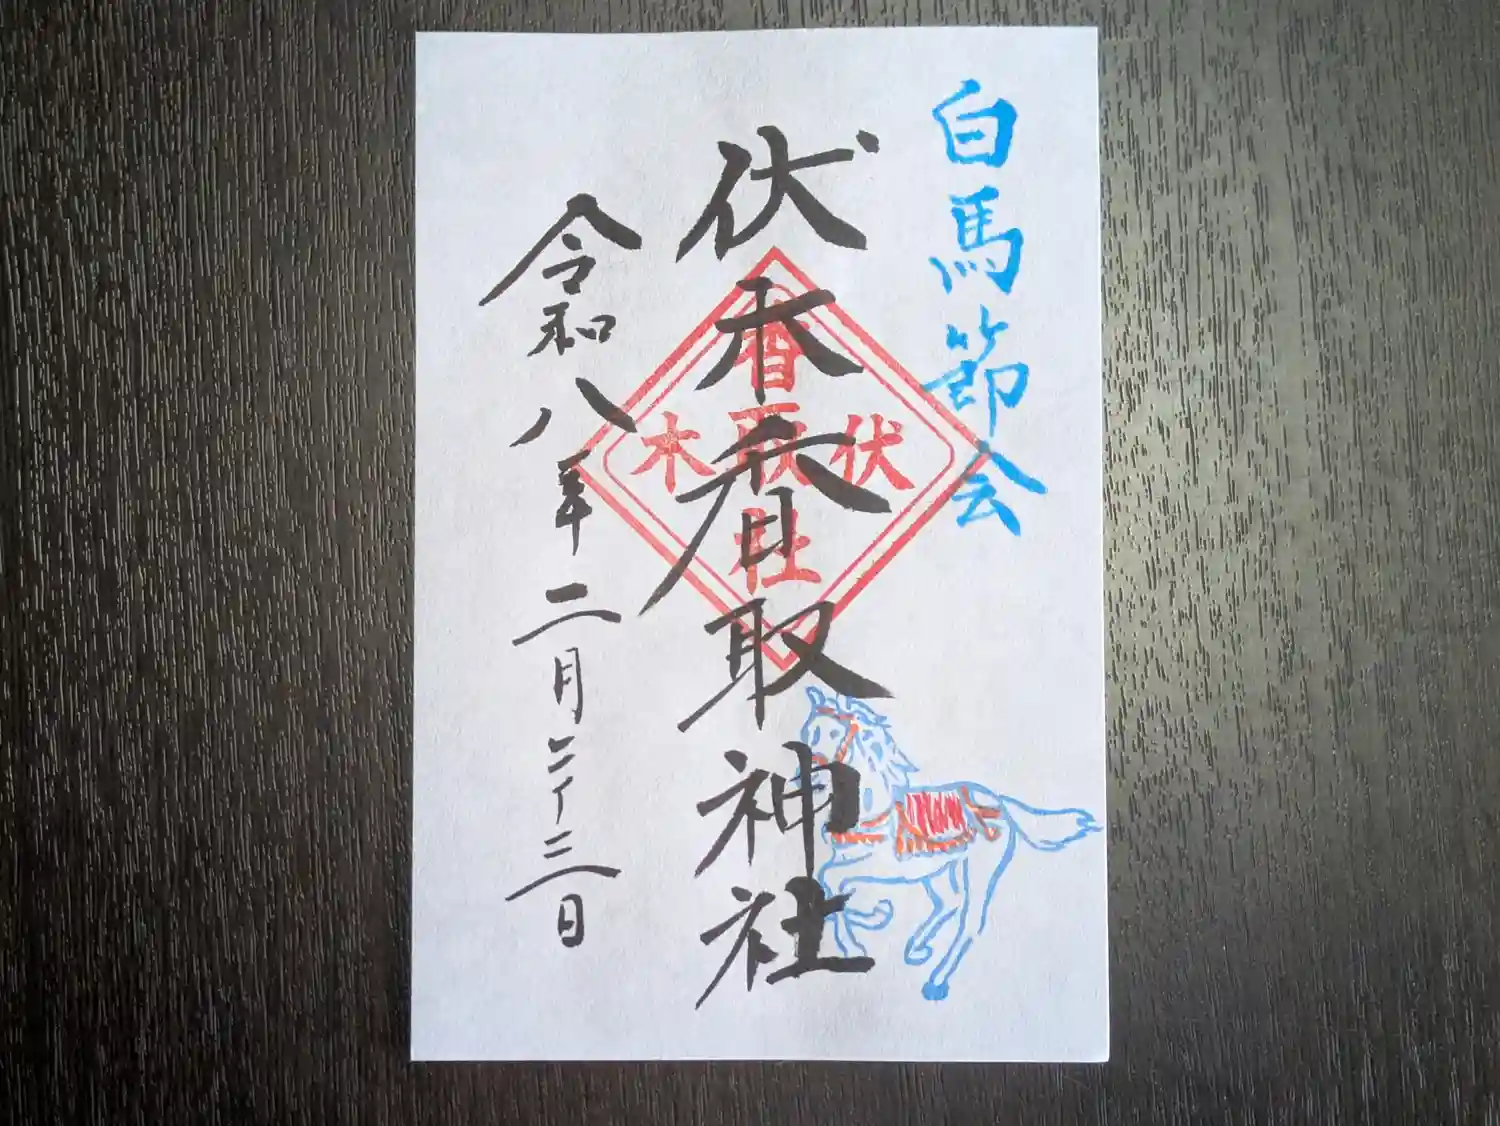 白馬節会
伏木香取神社
伏木
香取社
令和八年二月二十三日